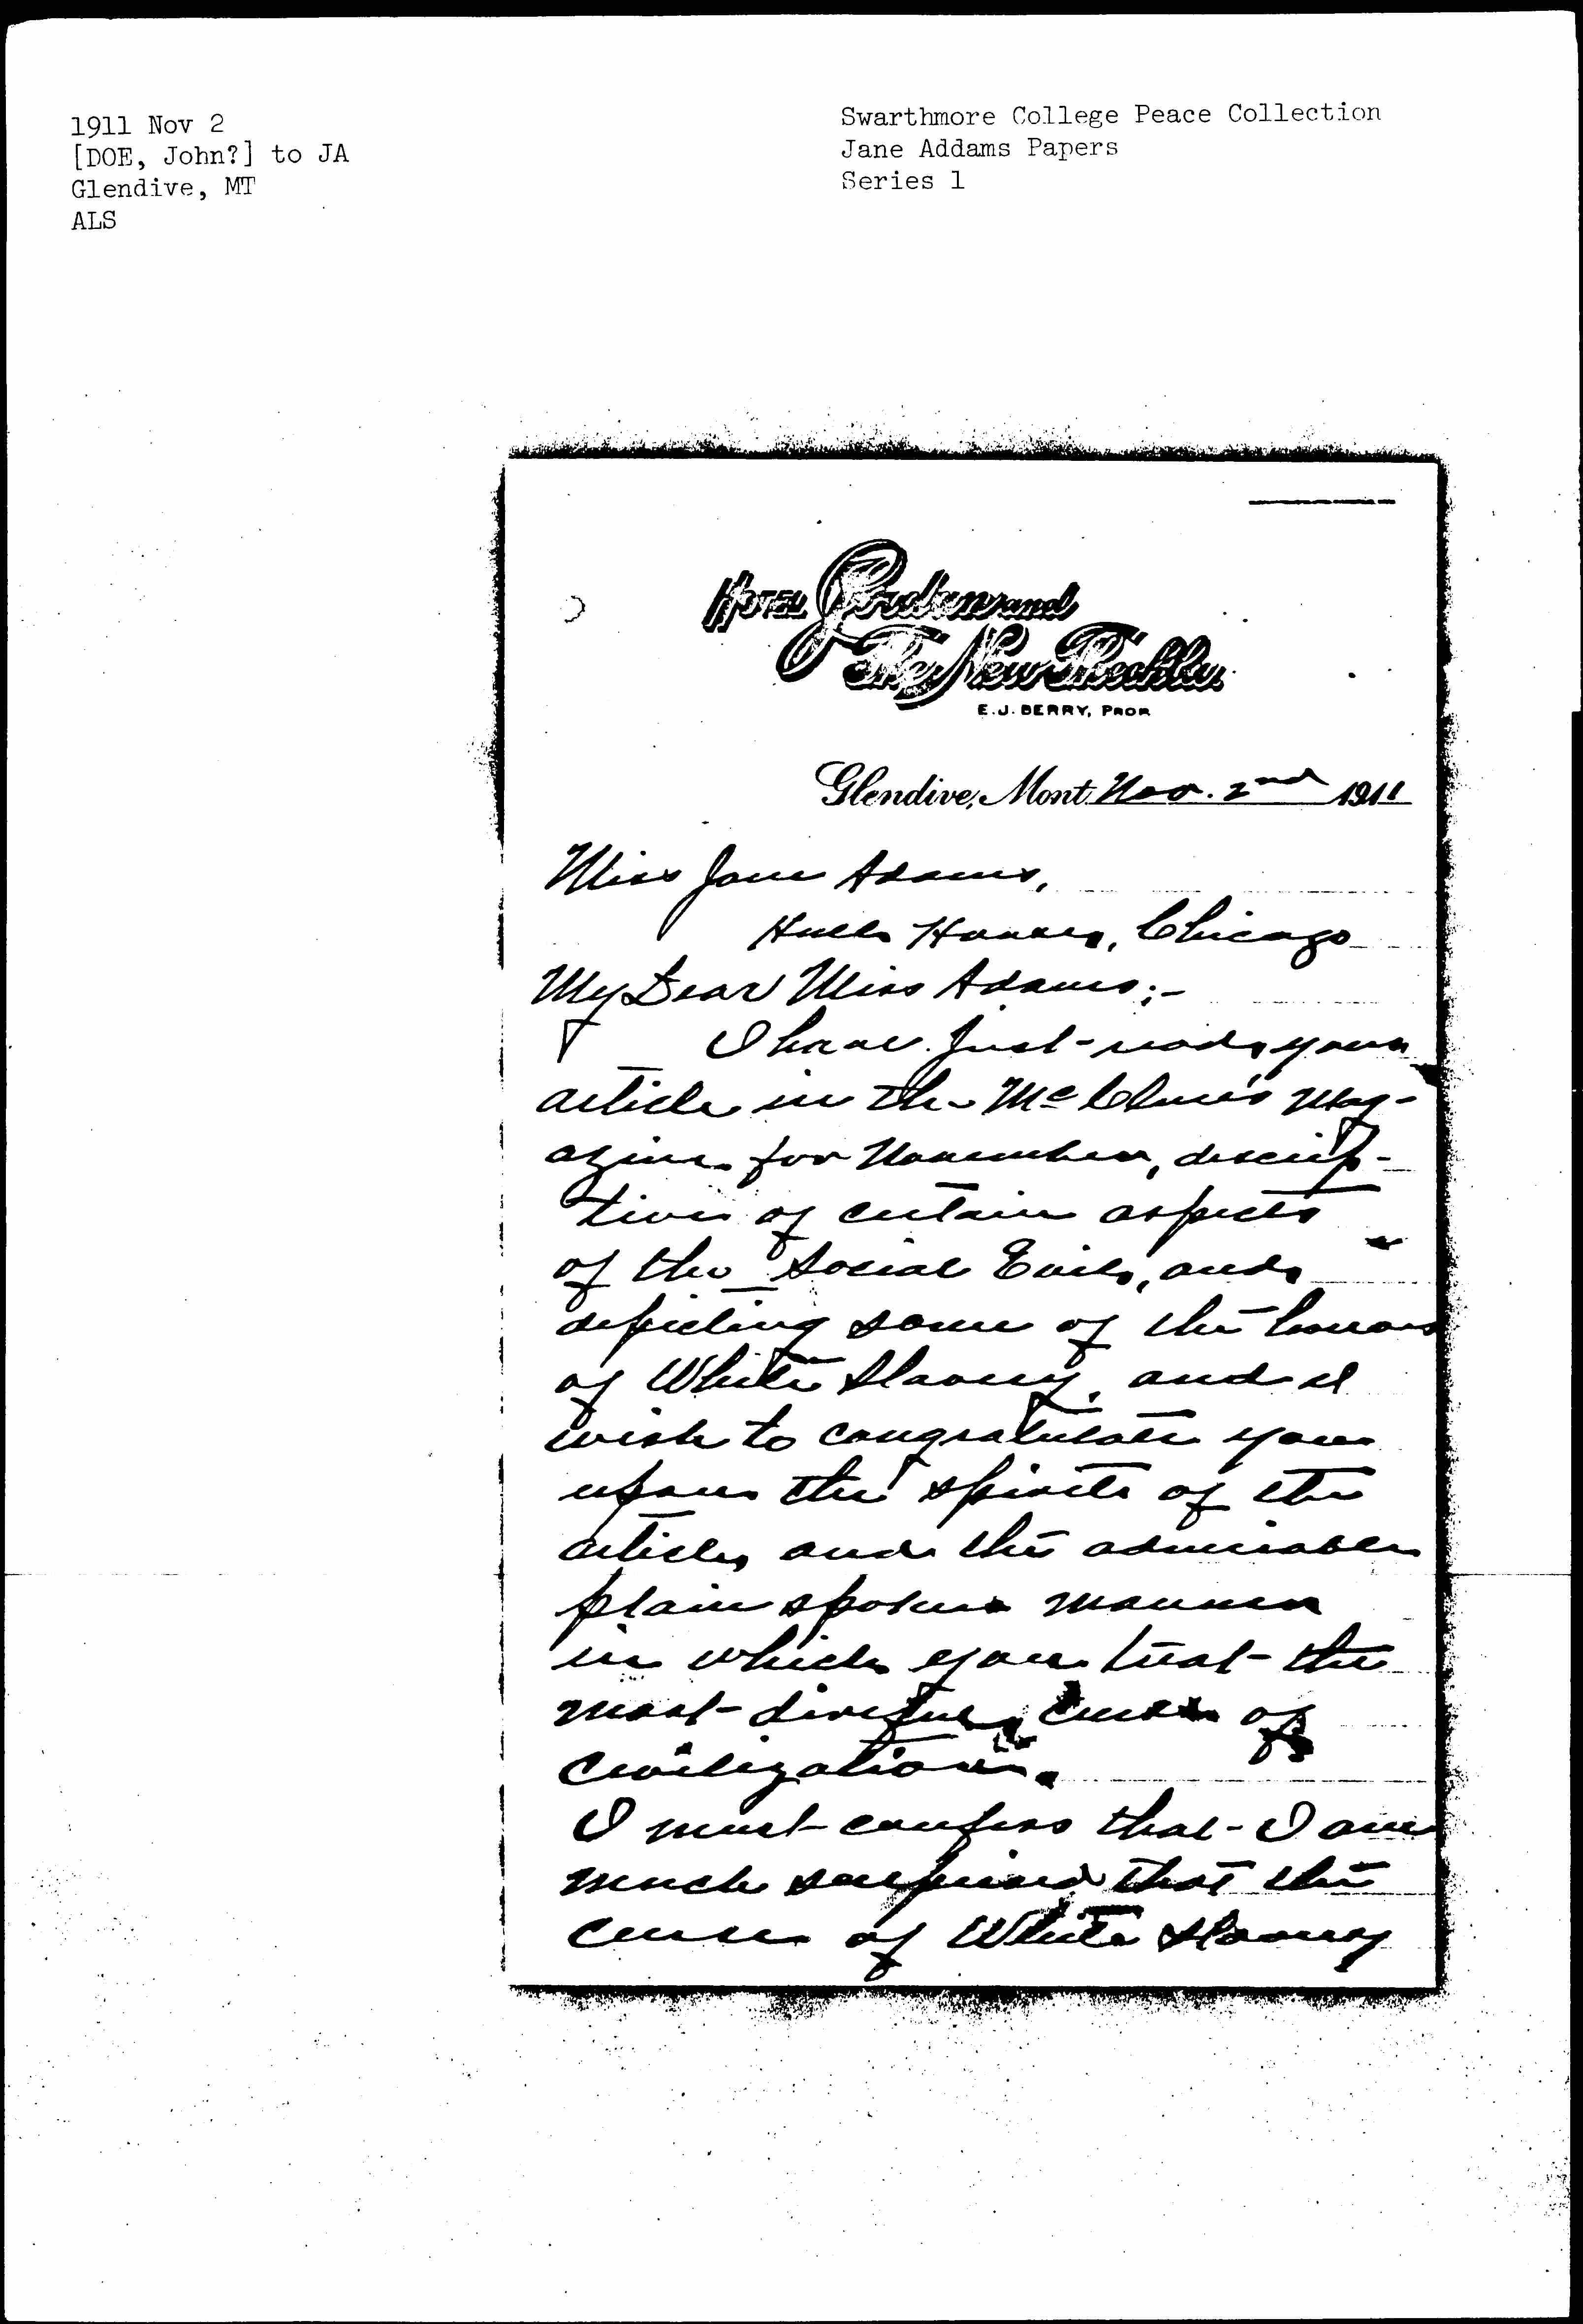 1911 Nov 2
[DOE, John?] to JA
Glendive, MT
ALS
Swarthmore College Peace Collection
Jane Addams Papers
Series 1
HOTEL Jordan and
The New
E.J. BERRY, PROR
Glendive, Mont. Nov. 2nd 1911
Miss Jane Adams,
Hull House, Chicago
My Dear Miss Adams;-
I have just read your
article in the McClure's Mag-
azine for November, descrip-
tive of certain aspects
of the Social Evil, and
depicting some of the horrors
of White Slavery, and I
wish to congratulate you
upon the spirit of the
article, and the admirable
plain spoken manner
in which you treat the
most curse of
civilization.
I must confess that I am
much surprised that the
curse of White Slavery